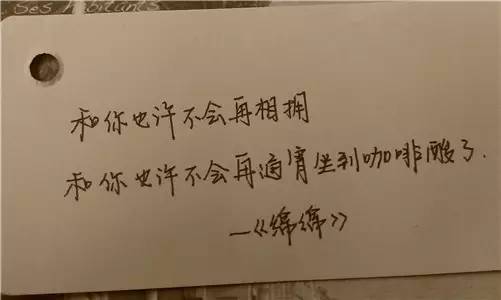 Ses Habitants
和你也许不会再相拥
和你也许不会再通宵坐到咖啡酸了.
—《绵绵》